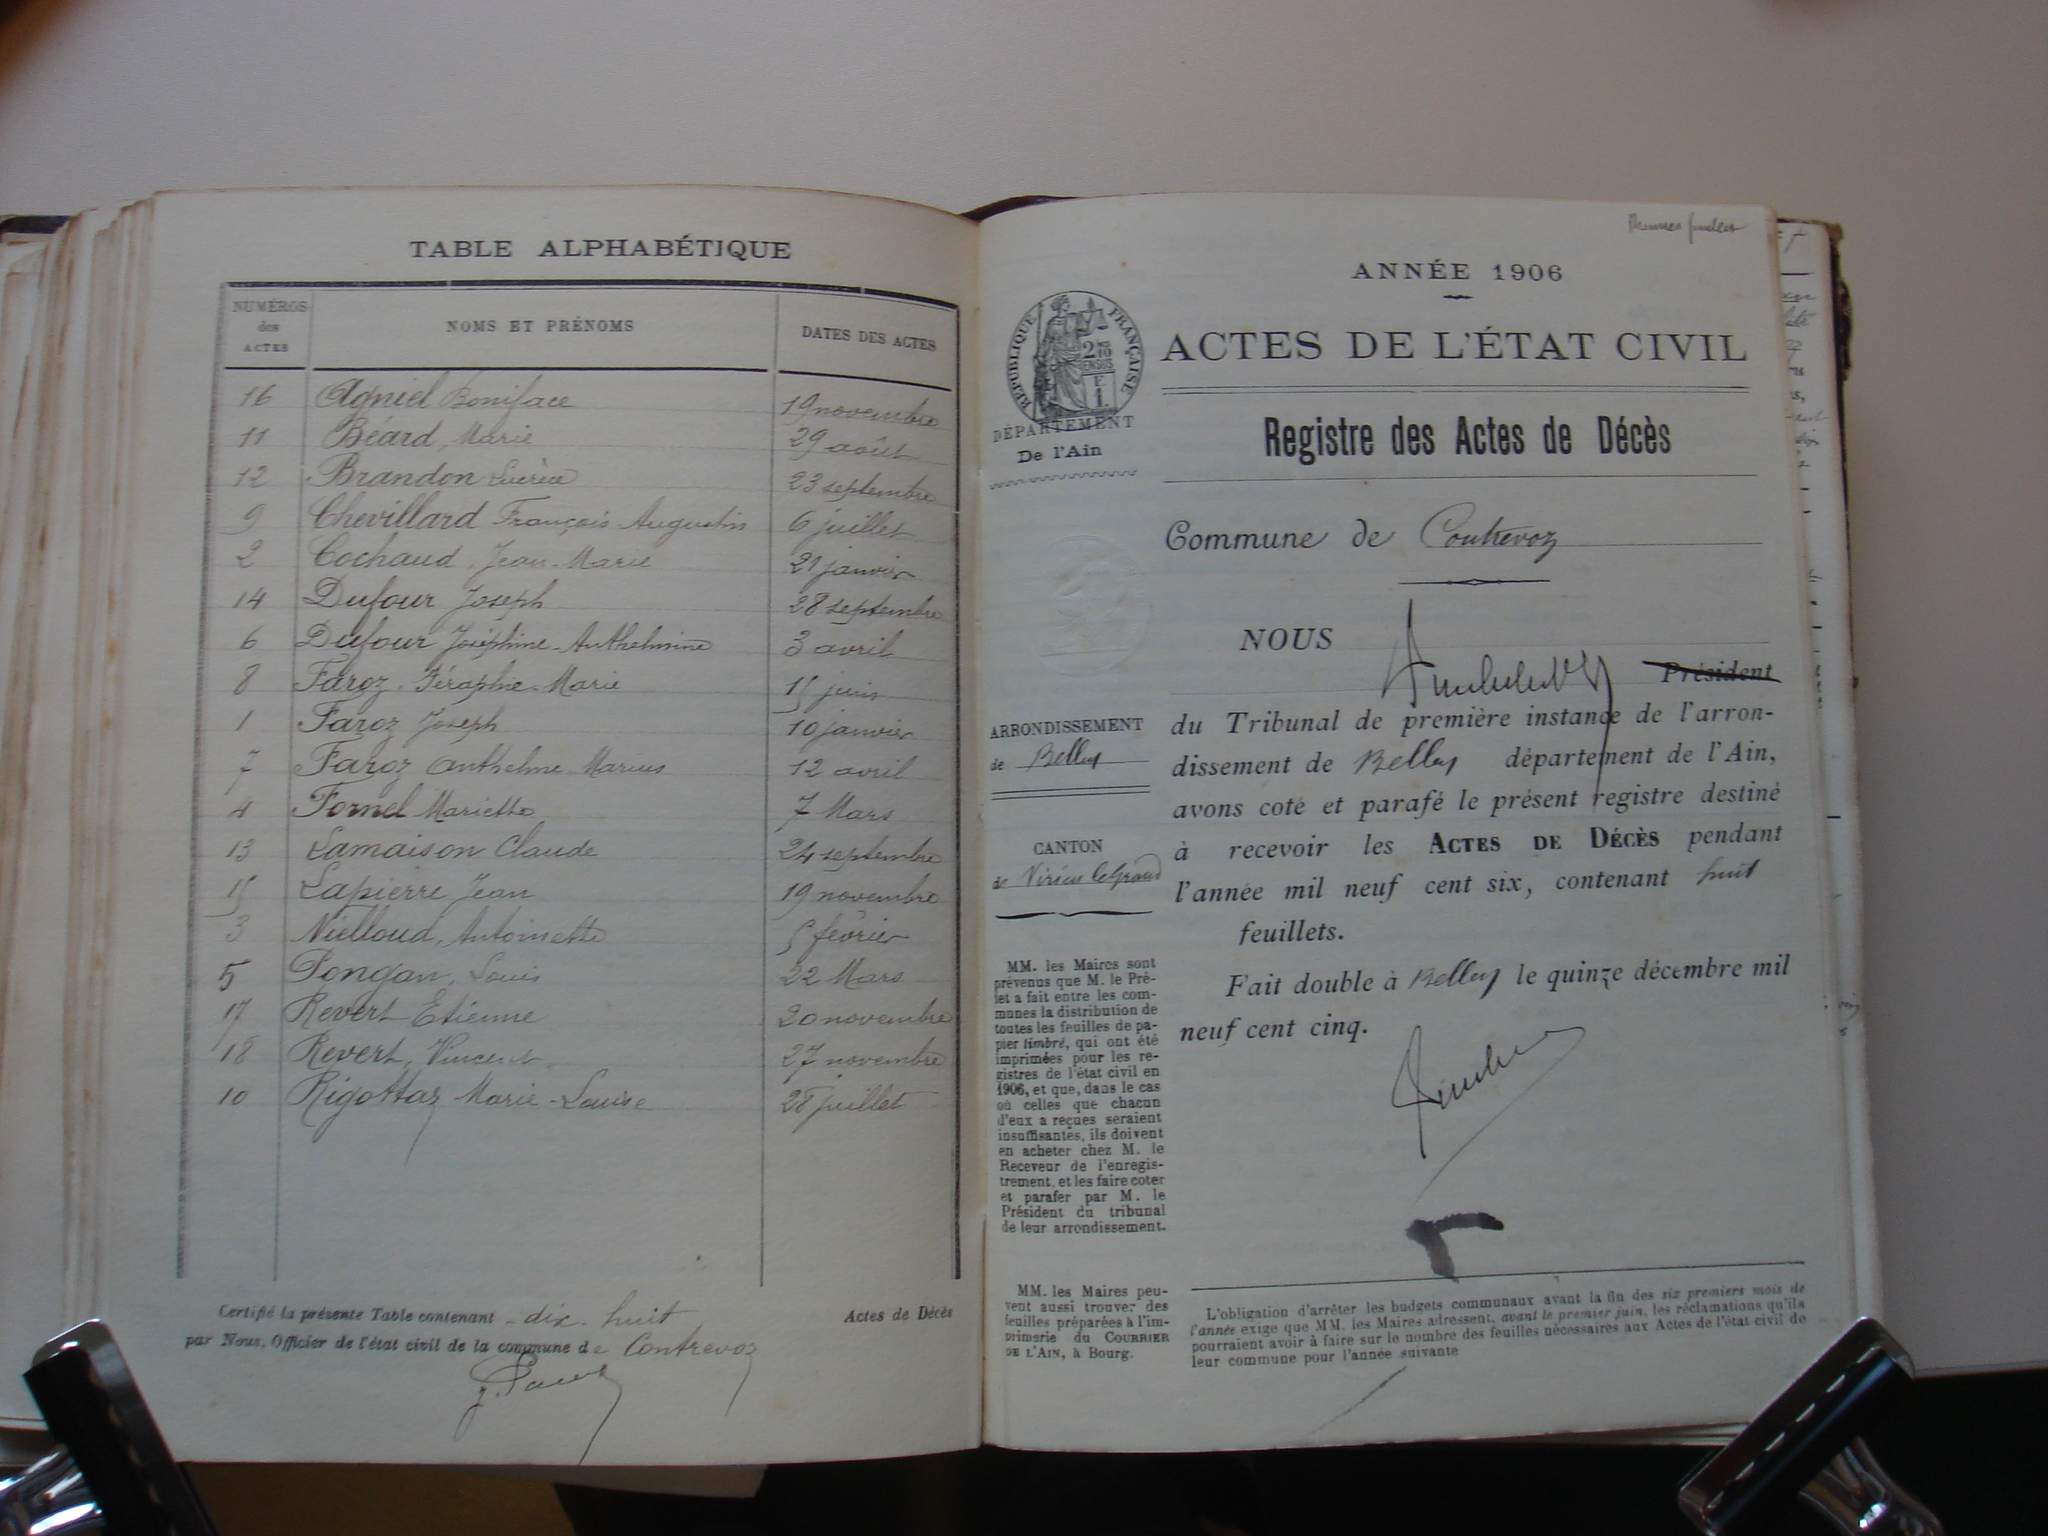 TABLE ALPHABÉTIQUE
NUMÉROS des ACTES NOMS ET PRÉNOMS DATES DES ACTES
16 Agniel Boniface 19 novembre
11 Béard, Marie 29 août
12 Brandon Lucrèce 23 septembre
9 Chevillard François Augustin 6 juillet
2 Cochaud, Jean-Marie 21 janvier
14 Dufour Joseph 28 septembre
6 Dufour Joséphine-Anthelmine 3 avril
8 Faroz, Séraphie-Marie 15 juin
1 Faroz Joseph 10 janvier
7 Faroz Anthelme-Marius 12 avril
4 Fornel Mariette 7 Mars
13 Lamaison Claude 24 septembre
15 Lapierre Jean 19 novembre
3 Nielloud, Antoinette 5 février
5 Pongan, Louis 22 Mars
17 Revert Etienne 20 novembre
18 Revert, Vincent 27 novembre
10 Rigottaz Marie-Louise 28 juillet
Certifié la présente Table contenant dix-huit Actes de Décès
par Nous, Officier de l'état civil de la commune de Contrevoz
ANNÉE 1906
RÉPUBLIQUE FRANÇAISE
DÉPARTEMENT
De l'Ain
ACTES DE L'ÉTAT CIVIL
Registre des Actes de Décès
Commune de Contrevoz
NOUS
Président
du Tribunal de première instance de l'arron-
dissement de Belley département de l'Ain,
avons coté et parafé le présent registre destiné
à recevoir les ACTES DE DÉCÈS pendant
l'année mil neuf cent six, contenant huit
feuillets.
Fait double à Belley le quinze décembre mil
neuf cent cinq.
ARRONDISSEMENT
de Belley
CANTON
de Virieu le Grand
MM. les Maires sont
prévenus que M. le Pré-
fet a fait entre les com-
munes la distribution de
toutes les feuilles de pa-
pier timbré, qui ont été
imprimées pour les re-
gistres de l'état civil en
1906, et que, dans le cas
où celles que chacun
d'eux a reçues seraient
insuffisantes, ils doivent
en acheter chez M. le
Receveur de l'enregis-
trement, et les faire coter
et parafer par M. le
Président du tribunal
de leur arrondissement.
MM. les Maires peu-
vent aussi trouver des
feuilles préparées à l'im-
primerie du COURRIER
DE L'AIN, à Bourg.
L'obligation d'arrêter les budgets communaux avant la fin des six premiers mois de
l'année exige que MM. les Maires adressent, avant le premier juin, les réclamations qu'ils
pourraient avoir à faire sur le nombre des feuilles nécessaires aux Actes de l'état civil de
leur commune pour l'année suivante